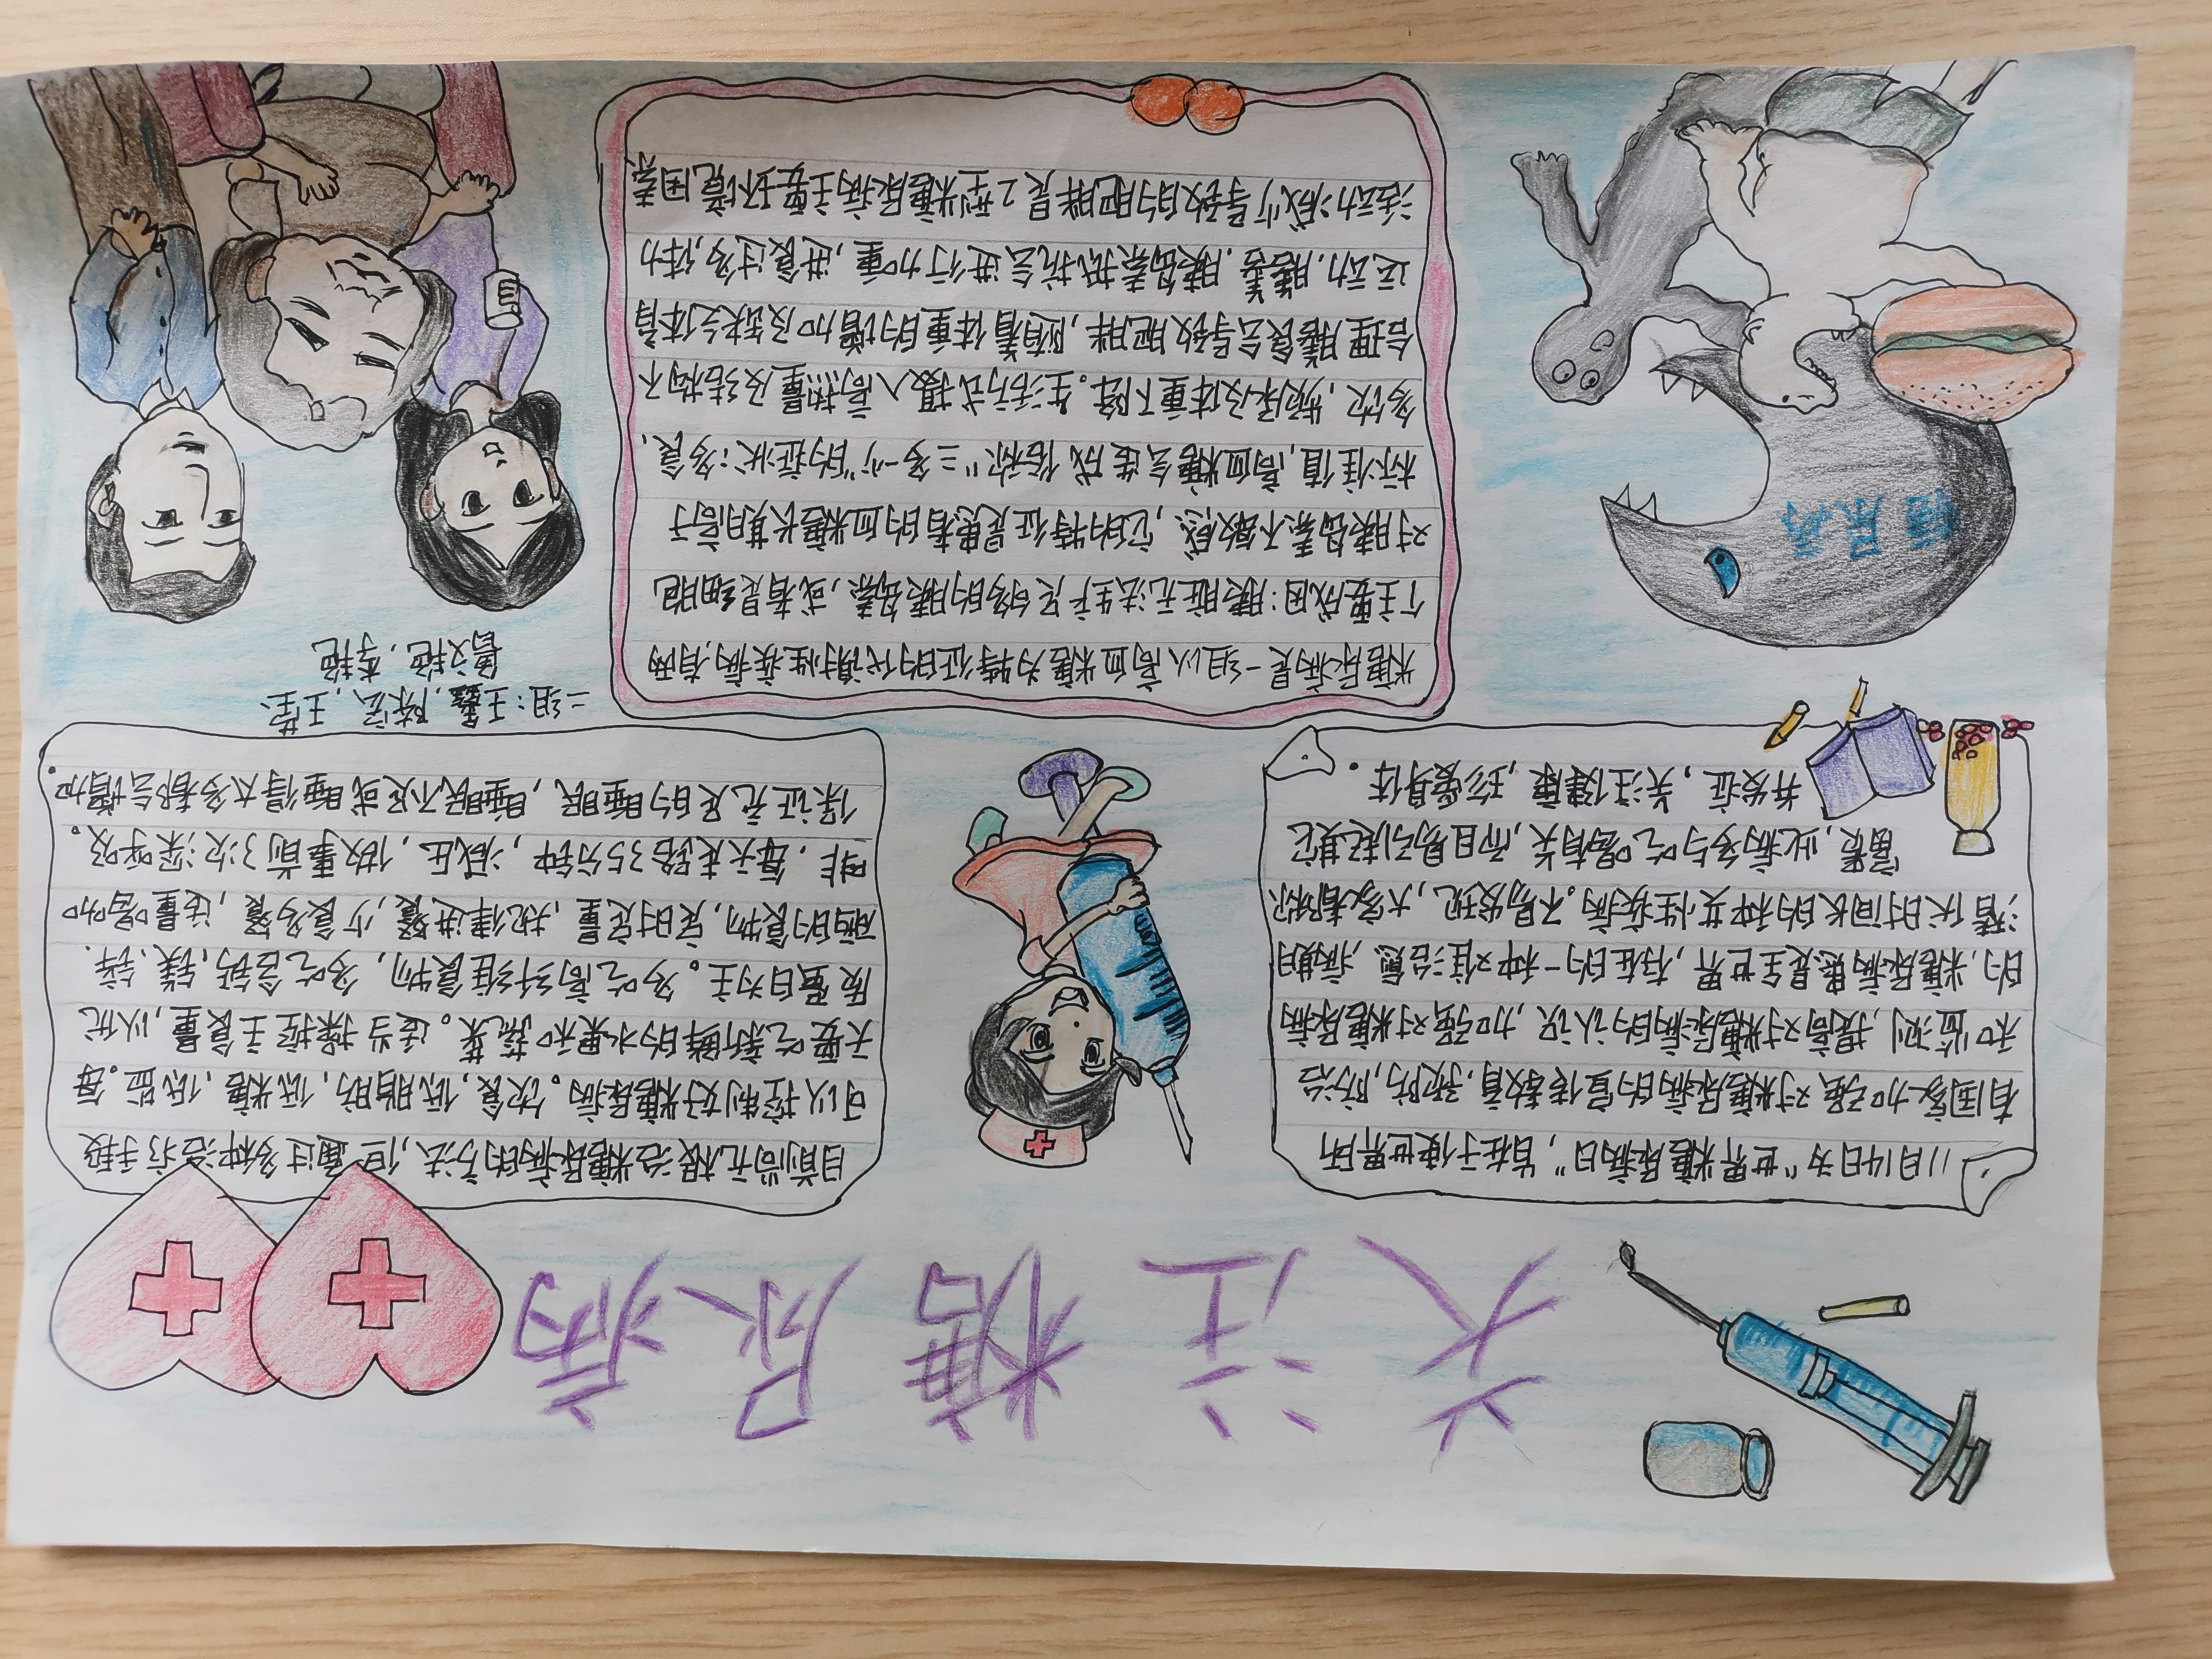 关注糖尿病
11月14日为“世界糖尿病日”，旨在于使世界所
有国家加强对糖尿病的宣传教育、预防，防治
和监测，提高对糖尿病的认识，加强对糖尿病
的，糖尿病患是全世界，存在的一种难治愈，病期
潜伏时间长的种女性疾病。不易发现，大家都称
富贵，此病多与吃喝有关，而且易引起其它
并发症，关注健康，珍爱身体。
目前尚无根治糖尿病的方法，但通过多种治疗手段
可以控制好糖尿病。饮食，低脂肪，低糖，低盐。每
天要吃新鲜的水果和蔬菜。适当操控主食量，以优
质蛋白为主。多吃高纤维食物，多吃含钙，镁、锌、
硒的食物，定时定量，规律进餐，少食多餐，适量喝咖
啡，每天走路35分钟，减压，做事前3次深呼吸。
保证充足的睡眠，睡眠不足或睡得太多都会增加。
糖尿病是一组以高血糖为特征的代谢性疾病，有两
个主要成因：胰脏无法生产足够的胰岛素，或者是细胞
对胰岛素不敏感，它的特征是患者的血糖长期高于
标准值，高血糖会造成俗称“三多一少”的症状：多食、
多饮，频尿及体重下降。生活方式摄入高热量及结构不
合理膳食会导致肥胖，随着体重的增加及缺乏体育
运动，胰岛素抵抗会进行加重，进食过多，体力
活动减少导致的肥胖是2型糖尿病主要环境因素
二组：王鑫，陈宏，王莹、
葛文艳，李艳
糖尿病